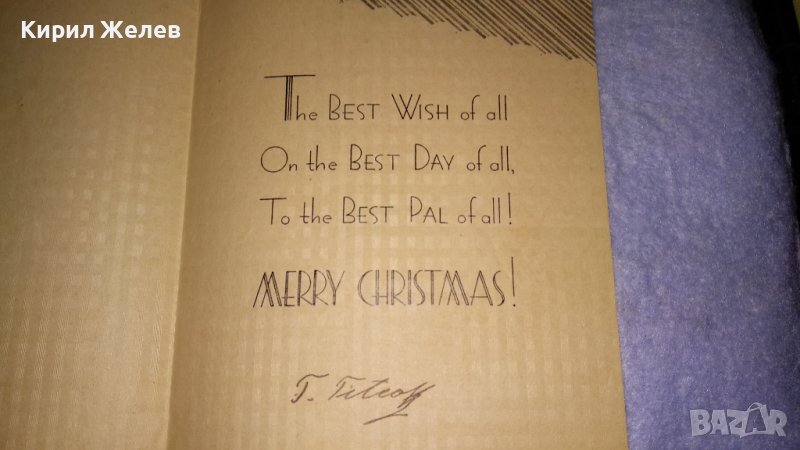 Кирил Желев
The BEST WISH of all
On the BEST DAY of all,
To the BEST PAL of all!
MERRY CHRISTMAS!
T.
BAZAR